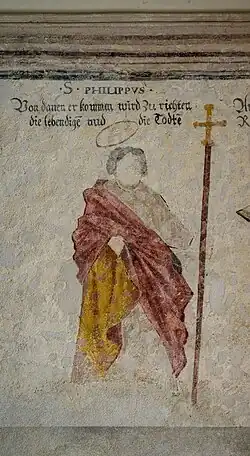 ·S· PHILIPPVS·
Von danen er kommen wird Zu richten
die lebendige und die Todte